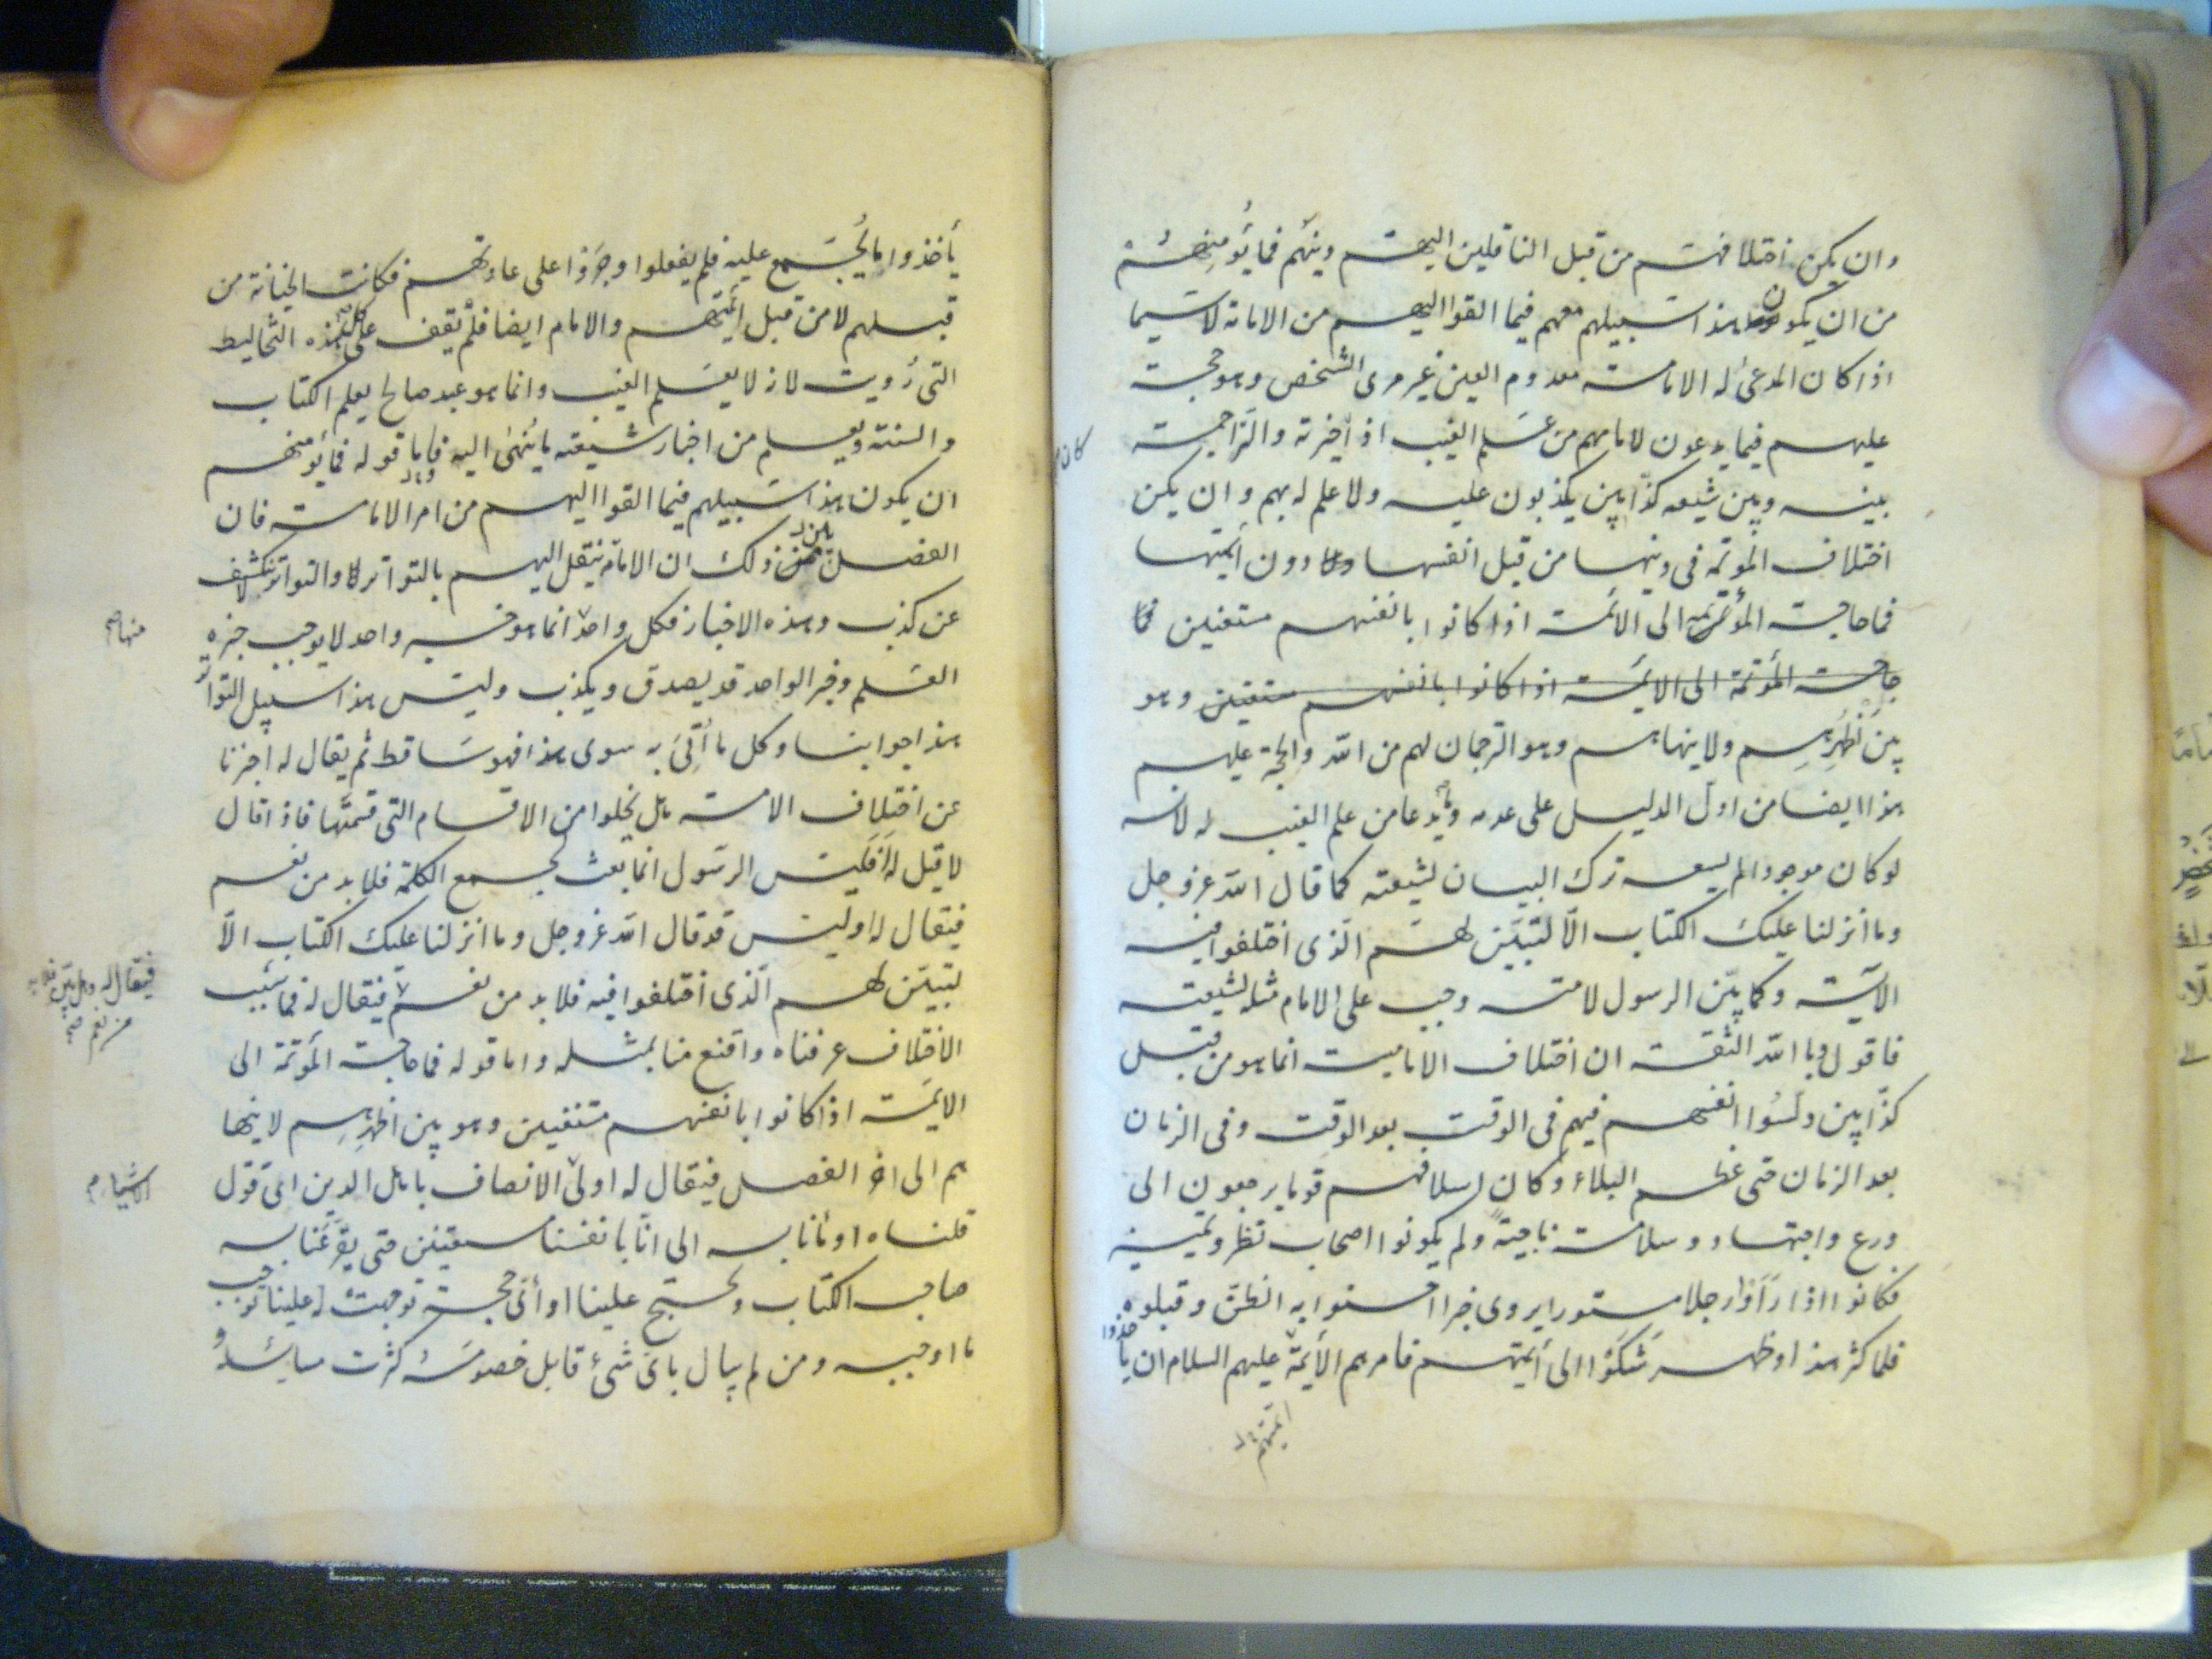 وان يكن اختلافهم من قبل الناقلين اليهم دينهم فما يُؤمِنهُم
من ان يكون هذا سبيلهم معهم فيما القوا اليهم من الامامة لا سيما
اذا كان المدعى له الامامة معدوم العين غير مرى الشخص وهو حجة
عليهم فيما يدعون لامامهم من علم الغيب اذ خيرته والتراجمة
كان
بينه وبين شيعته كذّابين يكذبون عليه ولا علم له بهم وان يكن
اختلاف المؤتمة فى دينها من قبل انفسها دون ائمتها
فما حاجة المؤتمة الى الائمة اذا كانوا بانفسهم مستغنين
حاجة المؤتمة الى الائمة اذا كانوا بانفسهم مستغنين وهو
بين اَظهُرِهم ولا ينهاهم وهو الترجمان لهم من الله والحجة عليهم
هذا ايضا من ادل الدليل على عدمه وما يدعا من علم الغيب له لانه
لو كان موجودا لم يسعه ترك البيان لشيعته كما قال الله عز وجل
وما انزلنا عليك الكتاب الّا لتبيّن لهم الّذى اختلفوا فيه
الآية وكما بيّن الرسول لامته وجب على الامام مثله لشيعته
فاقول وبالله الثقة ان اختلاف الامامية انما هو من قبل
كذّابين دلسُوا انفسهم فيهم فى الوقت بعد الوقت وفى الزمان
بعد الزمان حتى عظم البلاء وكان اسلافهم قوما يرجعون الى
ورع واجتهاد وسلامة ناحيةً ولم يكونوا اصحاب نظر وتميز
فكانوا اذا رَاَوْا رجلا مستورا يروى خبرا احسنوا به الظن وقبلوه
فلما كثر هذا وظهر شَكَوْا الى أئمتهم فامرهم الأئمة عليهم السلام ان يأخذوا
ائمتهم
يأخذوا بما يُجمَع عليه فلم يفعلوا وجَرَوْا على عادتهم فكانت الخيانة من
قبلهم لا من قبل ائمتهم والامام ايضا فلم يقف على كل هذه التخاليط
التى رُويت لانه لا يعلم الغيب وانما هو عبد صالح يعلم الكتاب
والسنة ويعلم من اخبار شيعته ما يُنهىٰ اليه فاما قوله فما يؤمنهم
ان يكون هذا سبيلهم فيما القوا اليهم من امر الامامة فان
الفصل بين ذلك ان الامامة تنقل اليهم بالتواتر والتواتر لا ينكشف
عن كذب وهذه الاخبار فكل واحد انما هو خبر واحد لا يوجب خبره
منها صح
العلم وخبر الواحد قد يصدق ويكذب وليس هذا سبيل التواتر
هذا جوابنا وكل ما أُتِىَ به سوى هذا فهو ساقط ثم يقال له اخبرنا
عن اختلاف الامة هل تخلوا من الاقسام التى قسمتَها فاذا قال
لا قيل له اَفليس الرسول انما بعث لجمع الكلمة فلا بد من نعم
فيقال له اوليس قد قال الله عز وجل وما انزلنا عليك الكتاب الّا
لتبيّن لهم الّذى اختلفوا فيه فلا بد من نعم فيقال له فما سبب
فيقال له وهل بيّن فلا بد
من نعم صح
الاختلاف عرفناه واقنع منا بمثله واما قوله فما حاجة المؤتمة الى
الائمة اذا كانوا بانفسهم مستغنين وهو بين اظهرِهِم لا ينها
هم الى اخر الفصل فيقال له اولى الانصاف باهل الدين اىّ قول
الاشياء
قلناه اومأنا به الى انّا بانفسنا مستغنين حتى يقرّعَنا به
صاحب الكتاب ويحتج علينا او اىّ حجة توجهت له علينا توجب
ما اوجبه ومن لم يبال باىّ شىء قابل خصومَه كثرت مسايله و